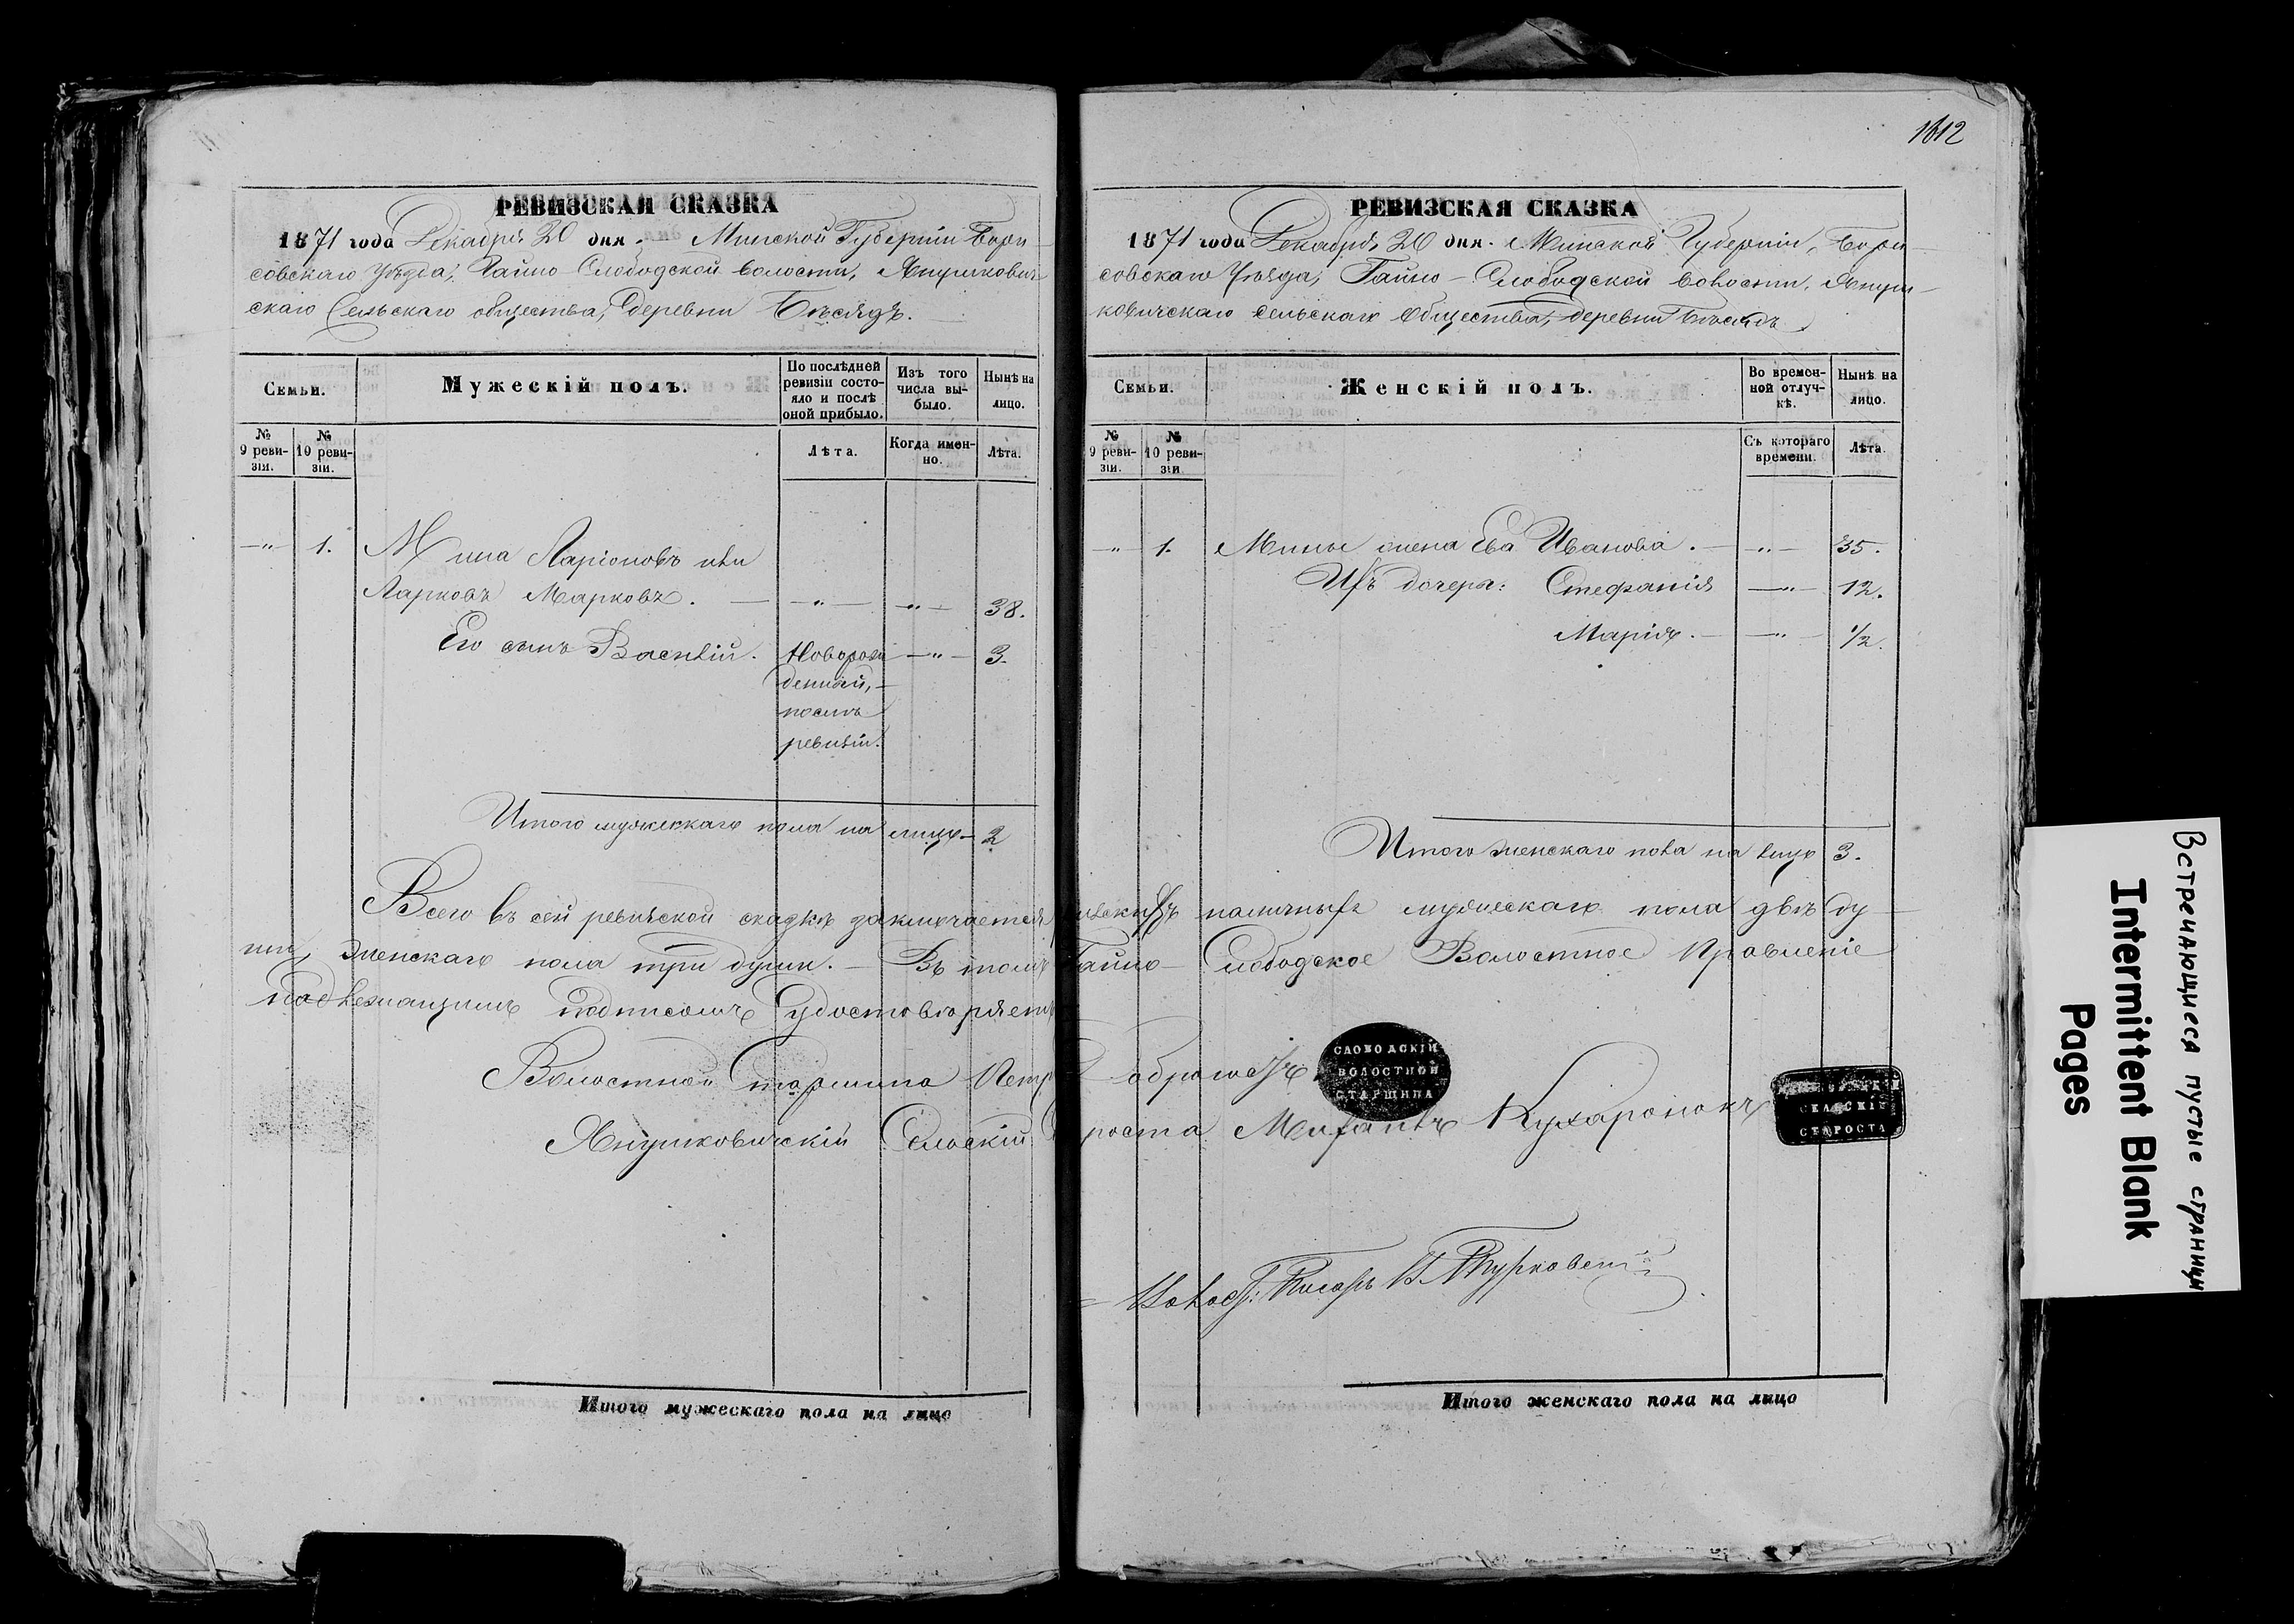 1612
РЕВИЗСКАЯ СКАЗКА
1871 года Декабря 20 дня. Минской Губернiи Бори-
совскаго Уѣзда, Гайно-Слободской волости, Янушкович-
скаго Сельскаго общества, деревни Бѣсядъ.
Семьи.
Мужескiй полъ.
По послѣдней ревизiи состо-
яло и послѣ оной прибыло.
Изъ того числа вы-
было.
Нынѣ на лицо.
№ 9 реви-
зiи.
№ 10 реви-
зiи.
Лѣта.
Когда имен-
но.
Лѣта.
— " — 1. Мина Ларiоновъ или
Ларковъ Марковъ. — — " — — " — 38.
Его сынъ Василiй. Новорож — " — 3.
денный,
послѣ
ревизiи.
Итого мужескаго пола на лицо — 2
РЕВИЗСКАЯ СКАЗКА
1871 года Декабря 20 дня. Минской Губернiи, Бори-
совскаго Уѣзда, Гайно-Слободской волости, Януш-
ковичскаго Сельскаго Общества, деревни Бѣсядъ
Семьи.
Женскiй полъ.
Во времен-
ной отлуч-
кѣ.
Нынѣ на лицо.
№ 9 реви-
зiи.
№ 10 реви-
зiи
Съ котораго времени.
Лѣта.
— " 1. Мины жена Ева Иванова. — — " — 35.
Ихъ дочери: Стефанiя — " — 12.
Марiя. — — " — 1/2.
Итого женскаго пола на лицо 3.
Всего въ сей ревизской сказкѣ заключается наличныхъ мужескаго пола двѣ ду-
ши, женскаго пола три души. — Въ томъ Гайно-Слободское Волостное Правленiе
подлежащимъ подписомъ удостовѣряетъ
Волостной Старшина Петр
СЛОБОДСКIЙ
ВОЛОСТНОЙ
СТАРШИНА
Янушковичскiй Сельскiй Староста Кухаронокъ
СЕЛЬСКIЙ
СТАРОСТА
Волост: Писарь
Итого мужескаго пола на лицо
Итого женскаго пола на лицо
Встречающиеся пустые страницы
Intermittent Blank
Pages